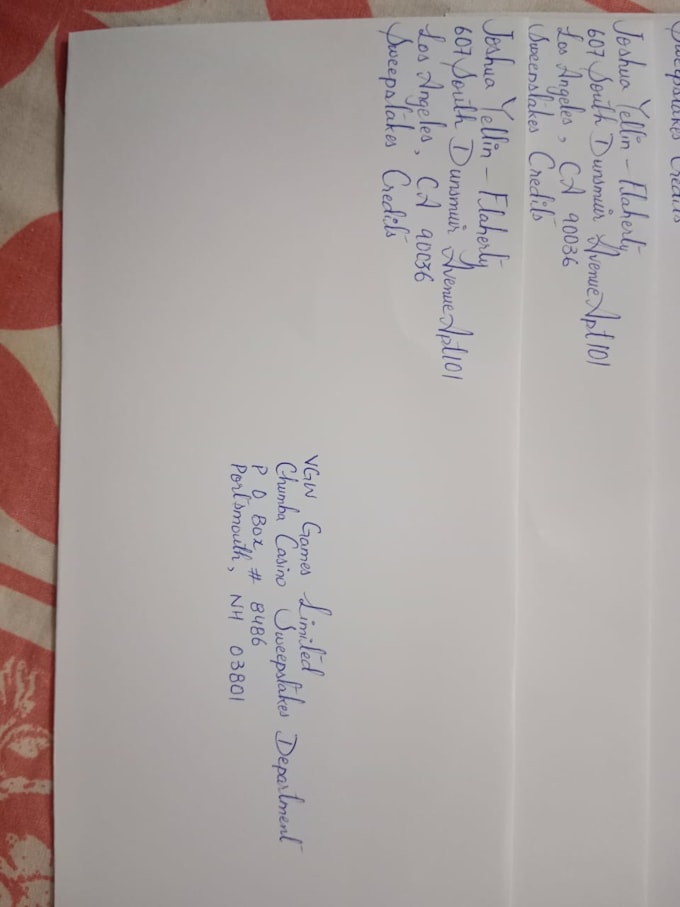 Joshua Yellin - Flaherty
607 South Dunsmuir Avenue Apt 101
Los Angeles, CA 90036
Sweepstakes Credits
VGW Games Limited
Chumba Casino Sweepstakes Department
P O Box # 8486
Portsmouth, NH 03801
Joshua Yellin - Flaherty
607 South Dunsmuir Avenue Apt 101
Los Angeles, CA 90036
Sweepstakes Credits
Sweepstakes Credits